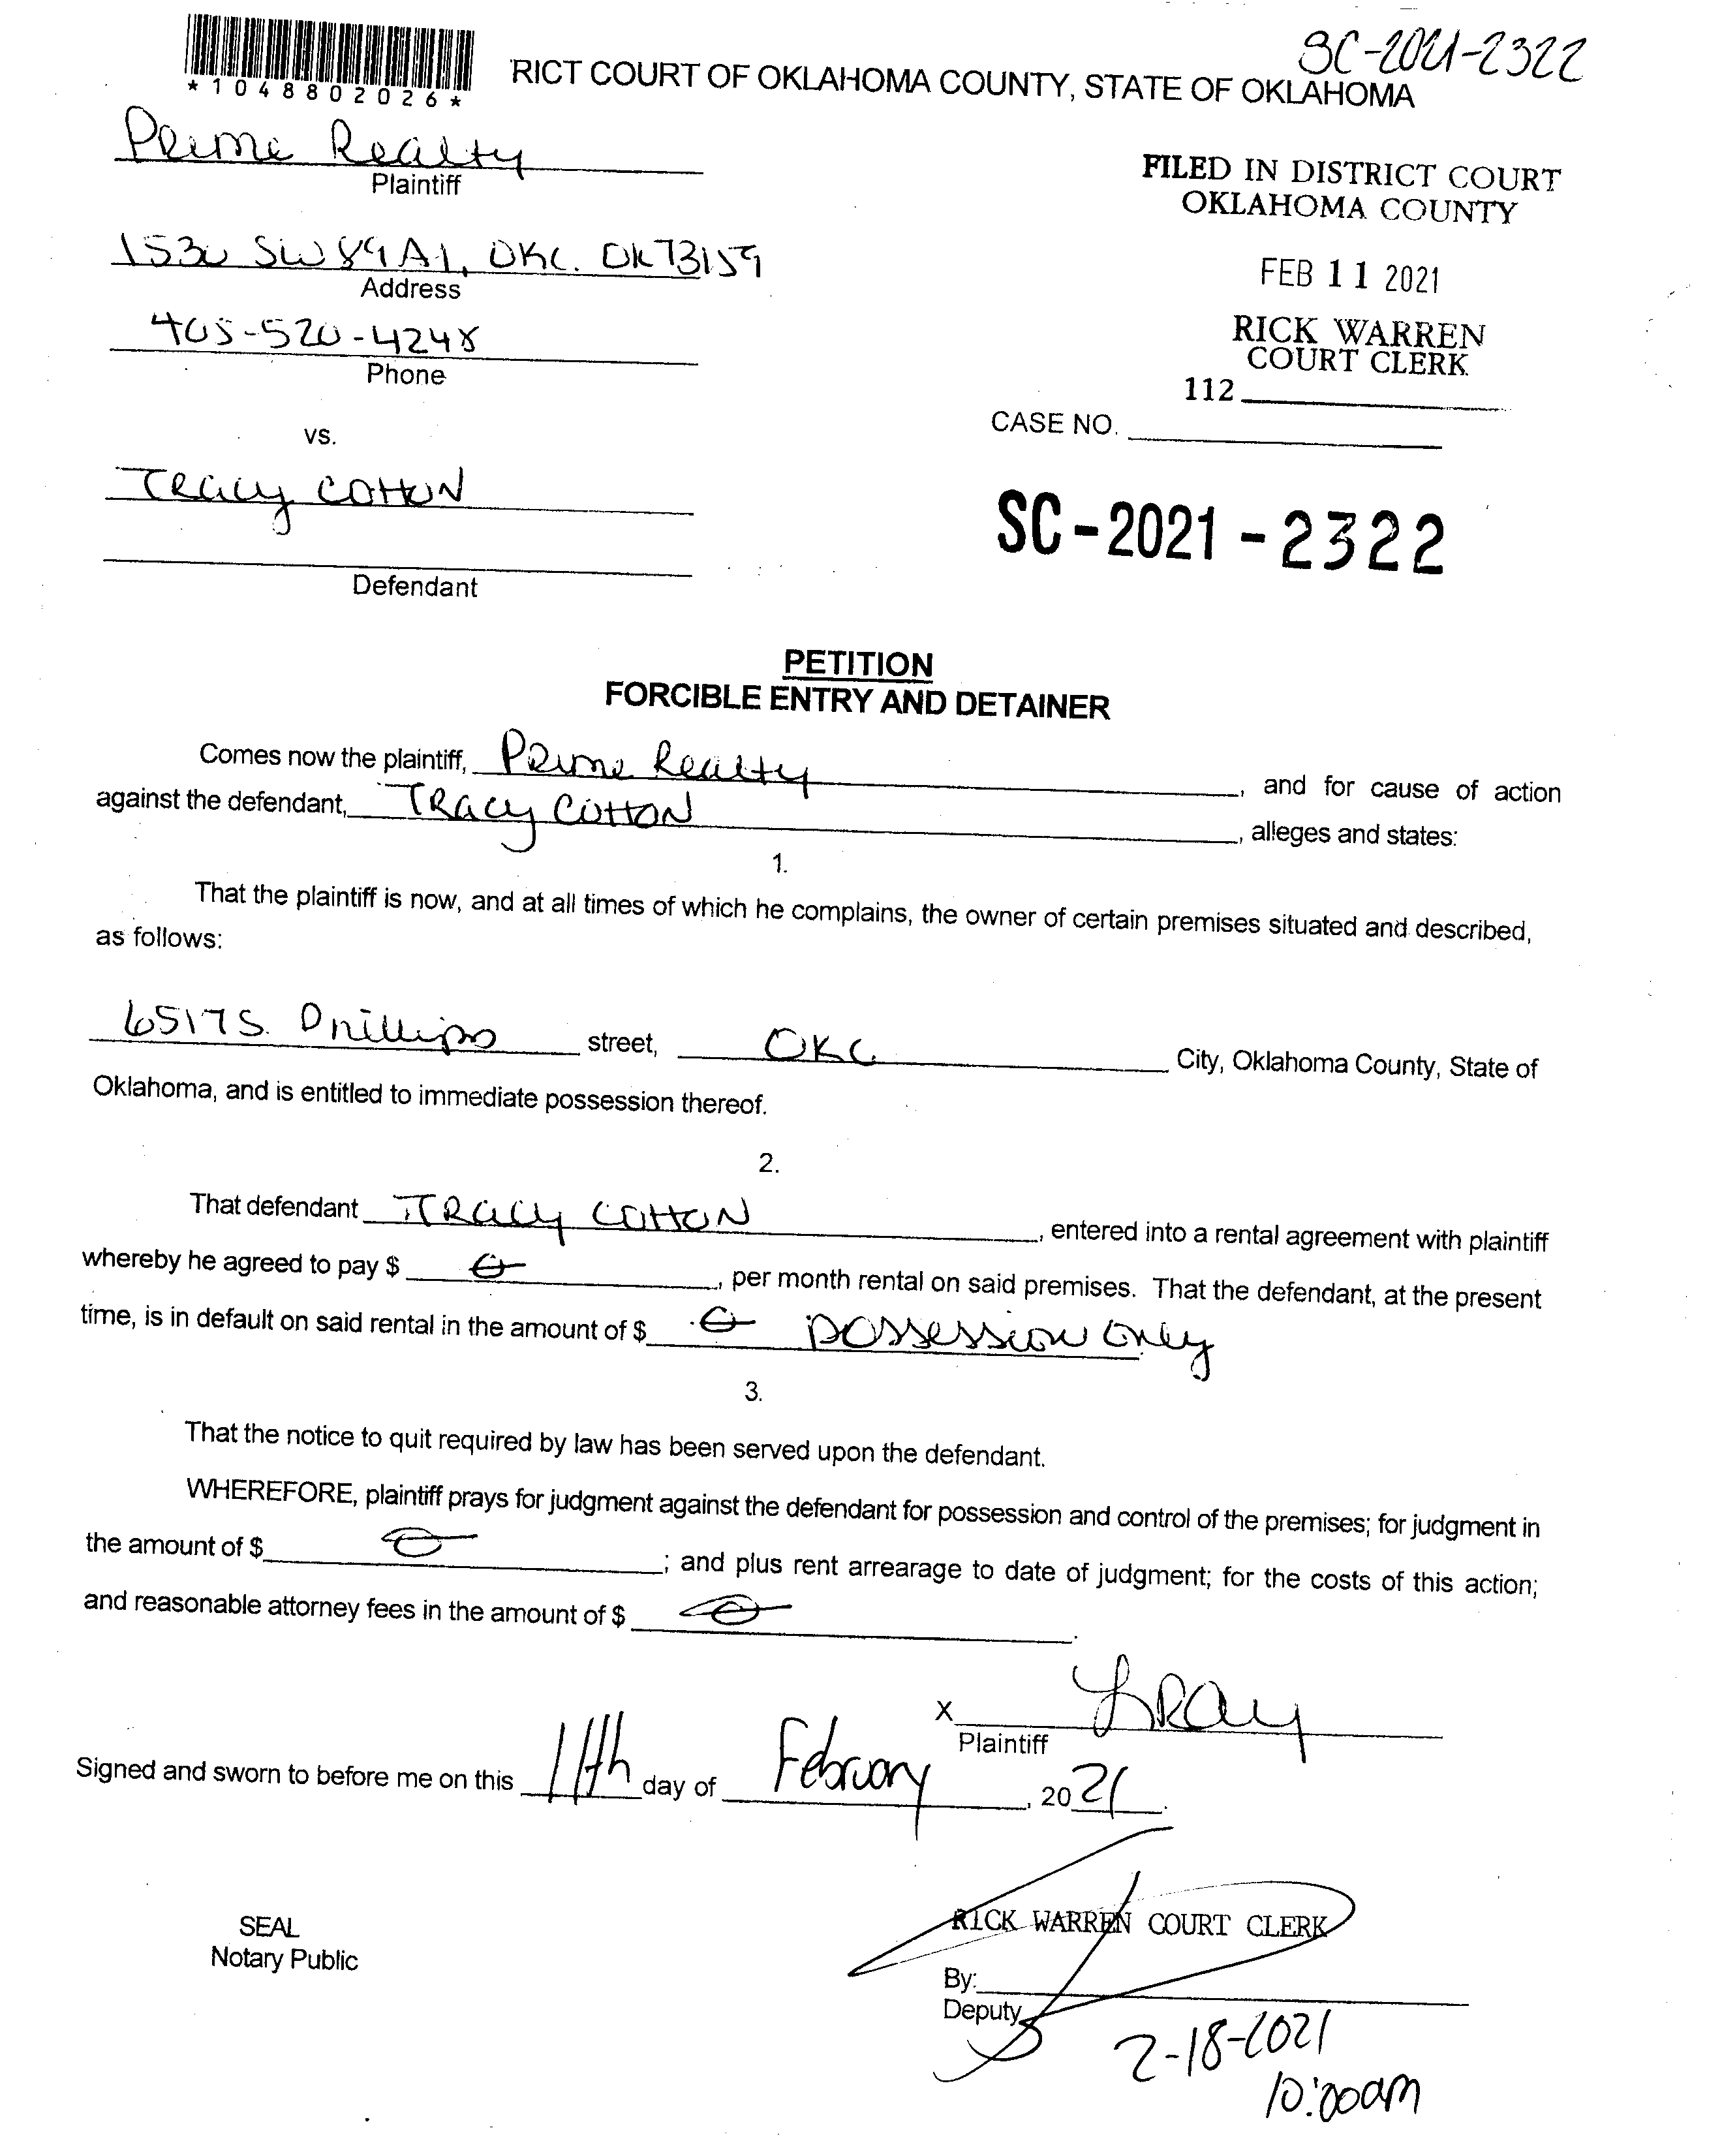 SC-2021-2322
*1048802026*
RICT COURT OF OKLAHOMA COUNTY, STATE OF OKLAHOMA
Prime Realty
Plaintiff
FILED IN DISTRICT COURT
OKLAHOMA COUNTY
1530 SW 89 A1, OKC. OK 73159
Address
FEB 11 2021
405-520-4248
Phone
RICK WARREN
COURT CLERK
112
CASE NO.
vs.
Tracy Cotton
SC-2021-2322
Defendant
PETITION
FORCIBLE ENTRY AND DETAINER
Comes now the plaintiff, Prime Realty, and for cause of action
against the defendant, Tracy Cotton, alleges and states:
1.
That the plaintiff is now, and at all times of which he complains, the owner of certain premises situated and described,
as follows:
6517 S. Phillips street, OKC City, Oklahoma County, State of
Oklahoma, and is entitled to immediate possession thereof.
2.
That defendant Tracy Cotton, entered into a rental agreement with plaintiff
whereby he agreed to pay $ 0, per month rental on said premises. That the defendant, at the present
time, is in default on said rental in the amount of $ 0 possession only
3.
That the notice to quit required by law has been served upon the defendant.
WHEREFORE, plaintiff prays for judgment against the defendant for possession and control of the premises; for judgment in
the amount of $ 0; and plus rent arrearage to date of judgment; for the costs of this action;
and reasonable attorney fees in the amount of $ 0.
X LRay
Plaintiff
Signed and sworn to before me on this 11th day of February, 2021.
SEAL
Notary Public
RICK WARREN COURT CLERK
By:
Deputy
2-18-2021
10:00am